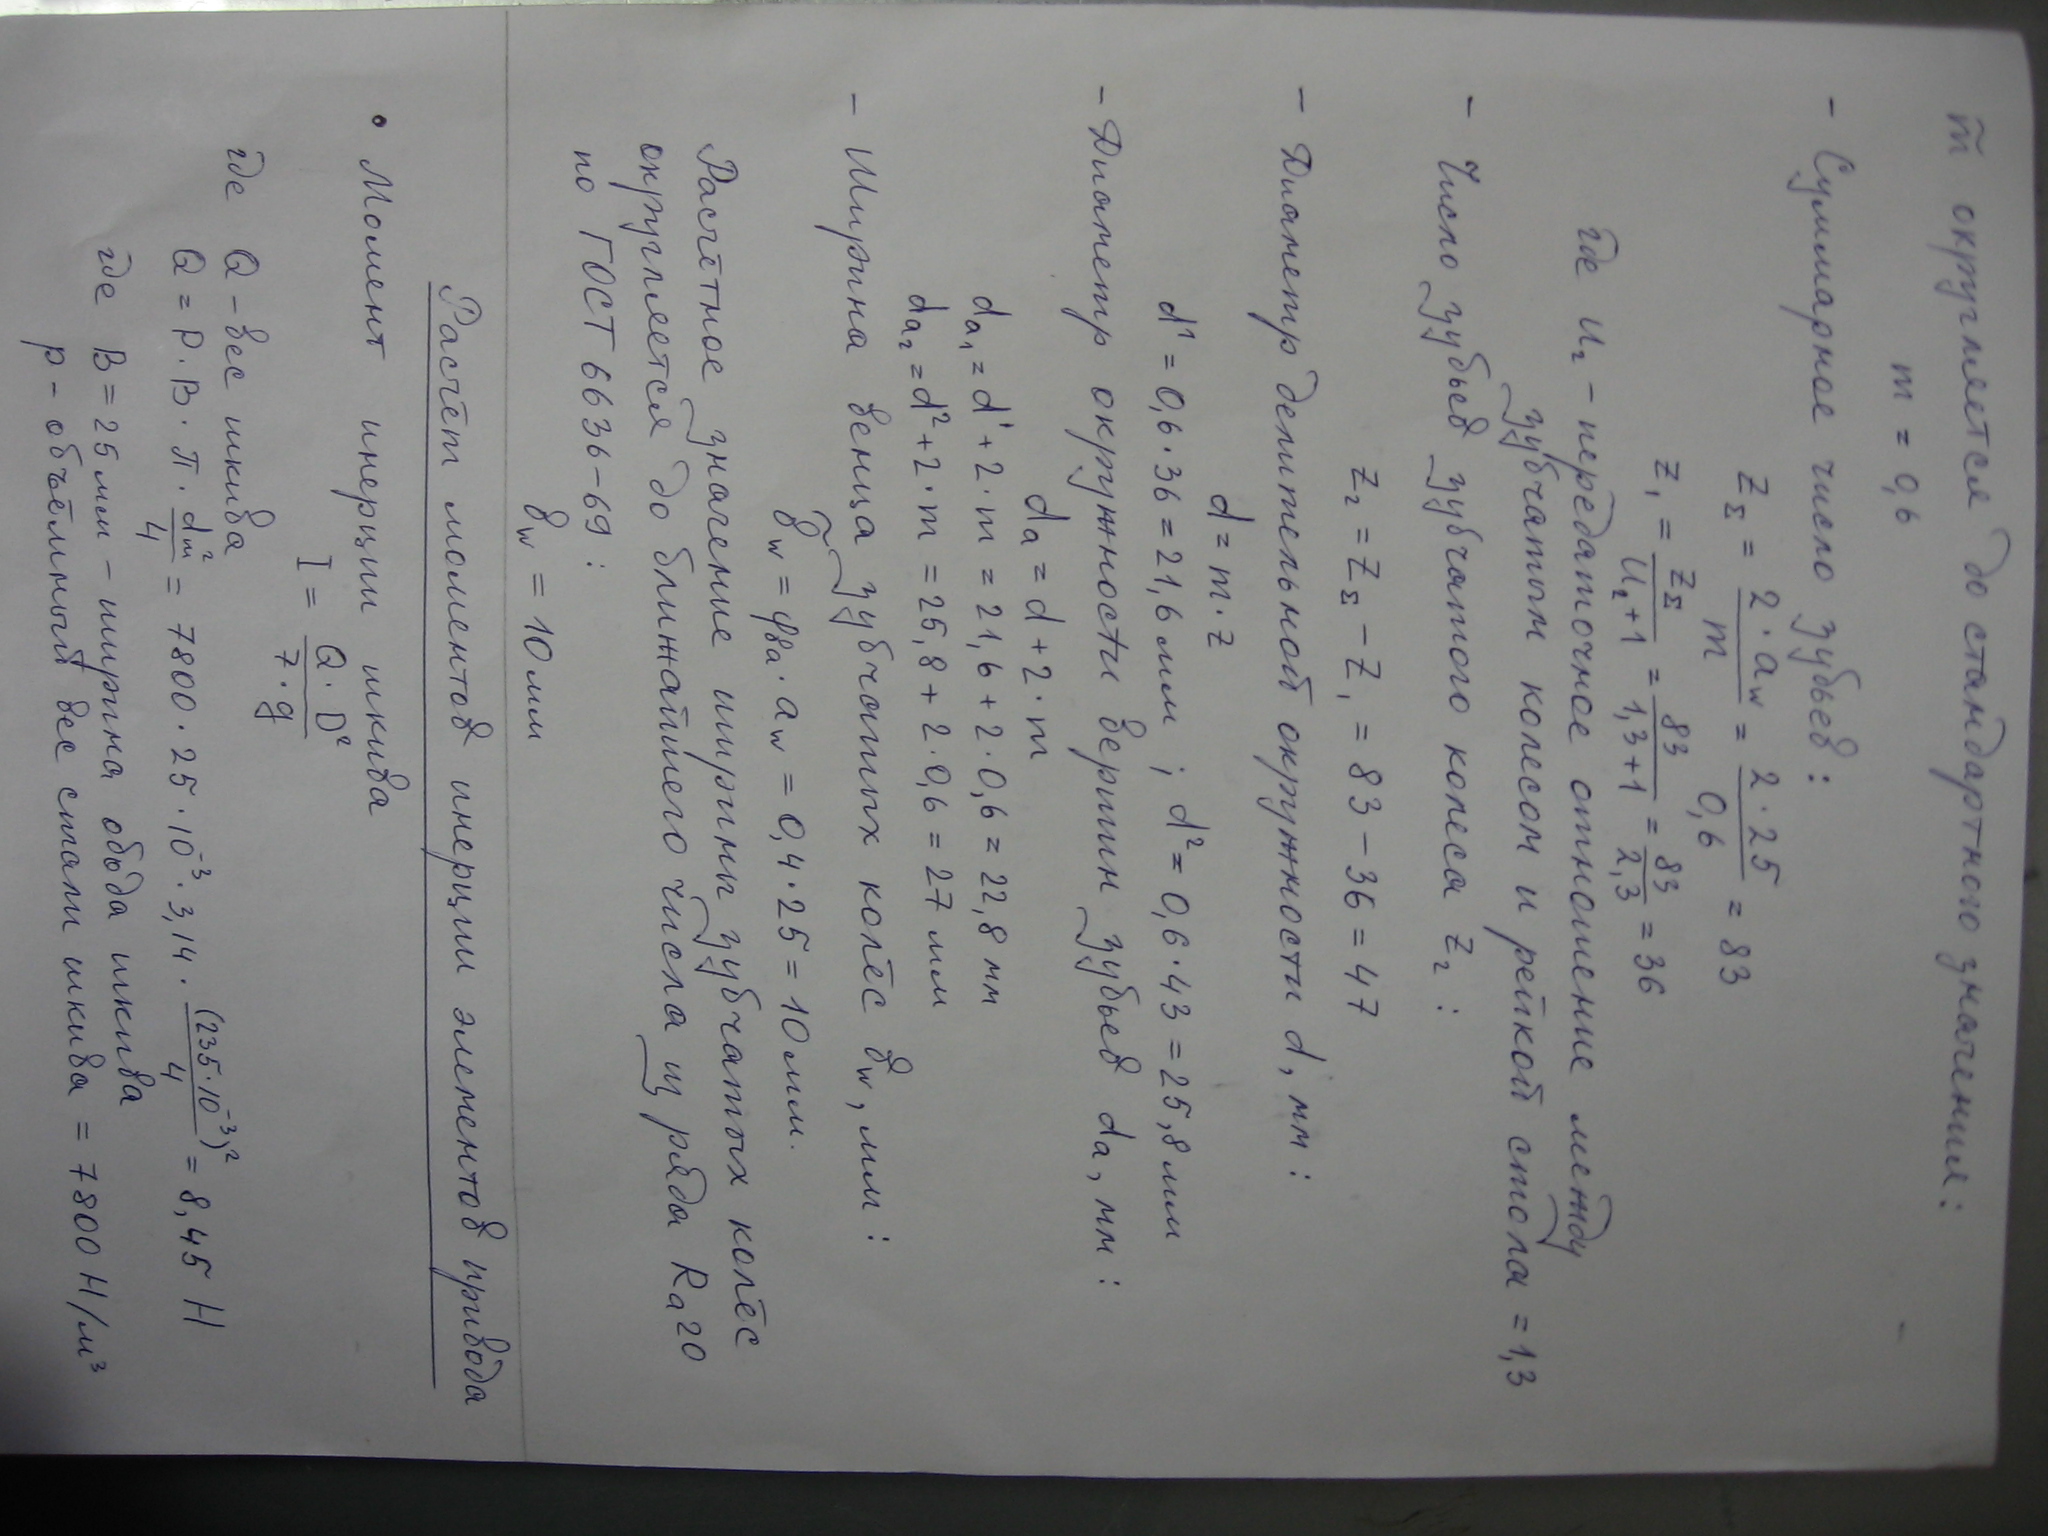 m̃ округляется до стандартного значения:
m = 0,6
- Суммарное число зубьев:
Z_Σ = (2·a_w)/m = (2·25)/0,6 = 83
Z₁ = Z_Σ/(U₂+1) = 83/(1,3+1) = 83/2,3 = 36
где U₂ - передаточное отношение между
зубчатым колесом и рейкой стола = 1,3
- Число зубьев зубчатого колеса Z₂:
Z₂ = Z_Σ - Z₁ = 83 - 36 = 47
- Диаметр делительной окружности d, мм:
d = m·z
d¹ = 0,6·36 = 21,6 мм ; d² = 0,6·43 = 25,8 мм
- Диаметр окружности вершин зубьев dₐ, мм:
dₐ = d + 2·m
dₐ₁ = d¹ + 2·m = 21,6 + 2·0,6 = 22,8 мм
dₐ₂ = d² + 2·m = 25,8 + 2·0,6 = 27 мм
- Ширина венца зубчатых колёс b_w, мм:
b̃_w = φ_ba·a_w = 0,4·25 = 10 мм.
Расчётное значение ширины зубчатых колёс
округляется до ближайшего числа из ряда Ra20
по ГОСТ 6636-69:
b_w = 10 мм
Расчёт моментов инерции элементов привода
• Момент инерции шкива
I = (Q·D²)/(7·g)
где Q - вес шкива
Q = P·B·π·dm²/4 = 7800·25·10⁻³·3,14·(235·10⁻³)²/4 = 8,45 Н
где B = 25 мм - ширина обода шкива
p - объёмный вес стали шкива = 7800 Н/м³